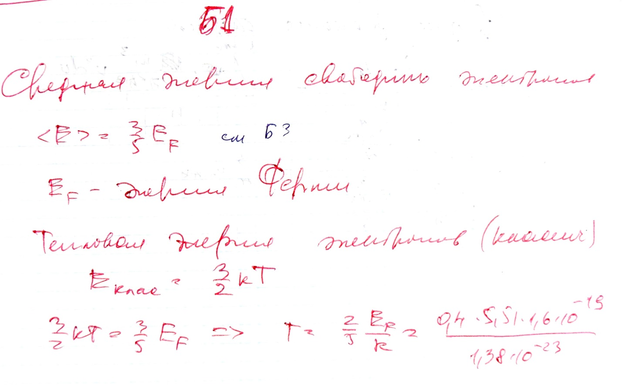 Б1
Средняя энергия свободных электронов
<E> = 3/5 E_F см Б3
E_F – энергия Ферми
Тепловая энергия электронов (классич)
E_клас = 3/2 kT
3/2 kT = 3/5 E_F => T = 2/5 E_F/k = 0,4·5,51·1,6·10^-19 / 1,38·10^-23